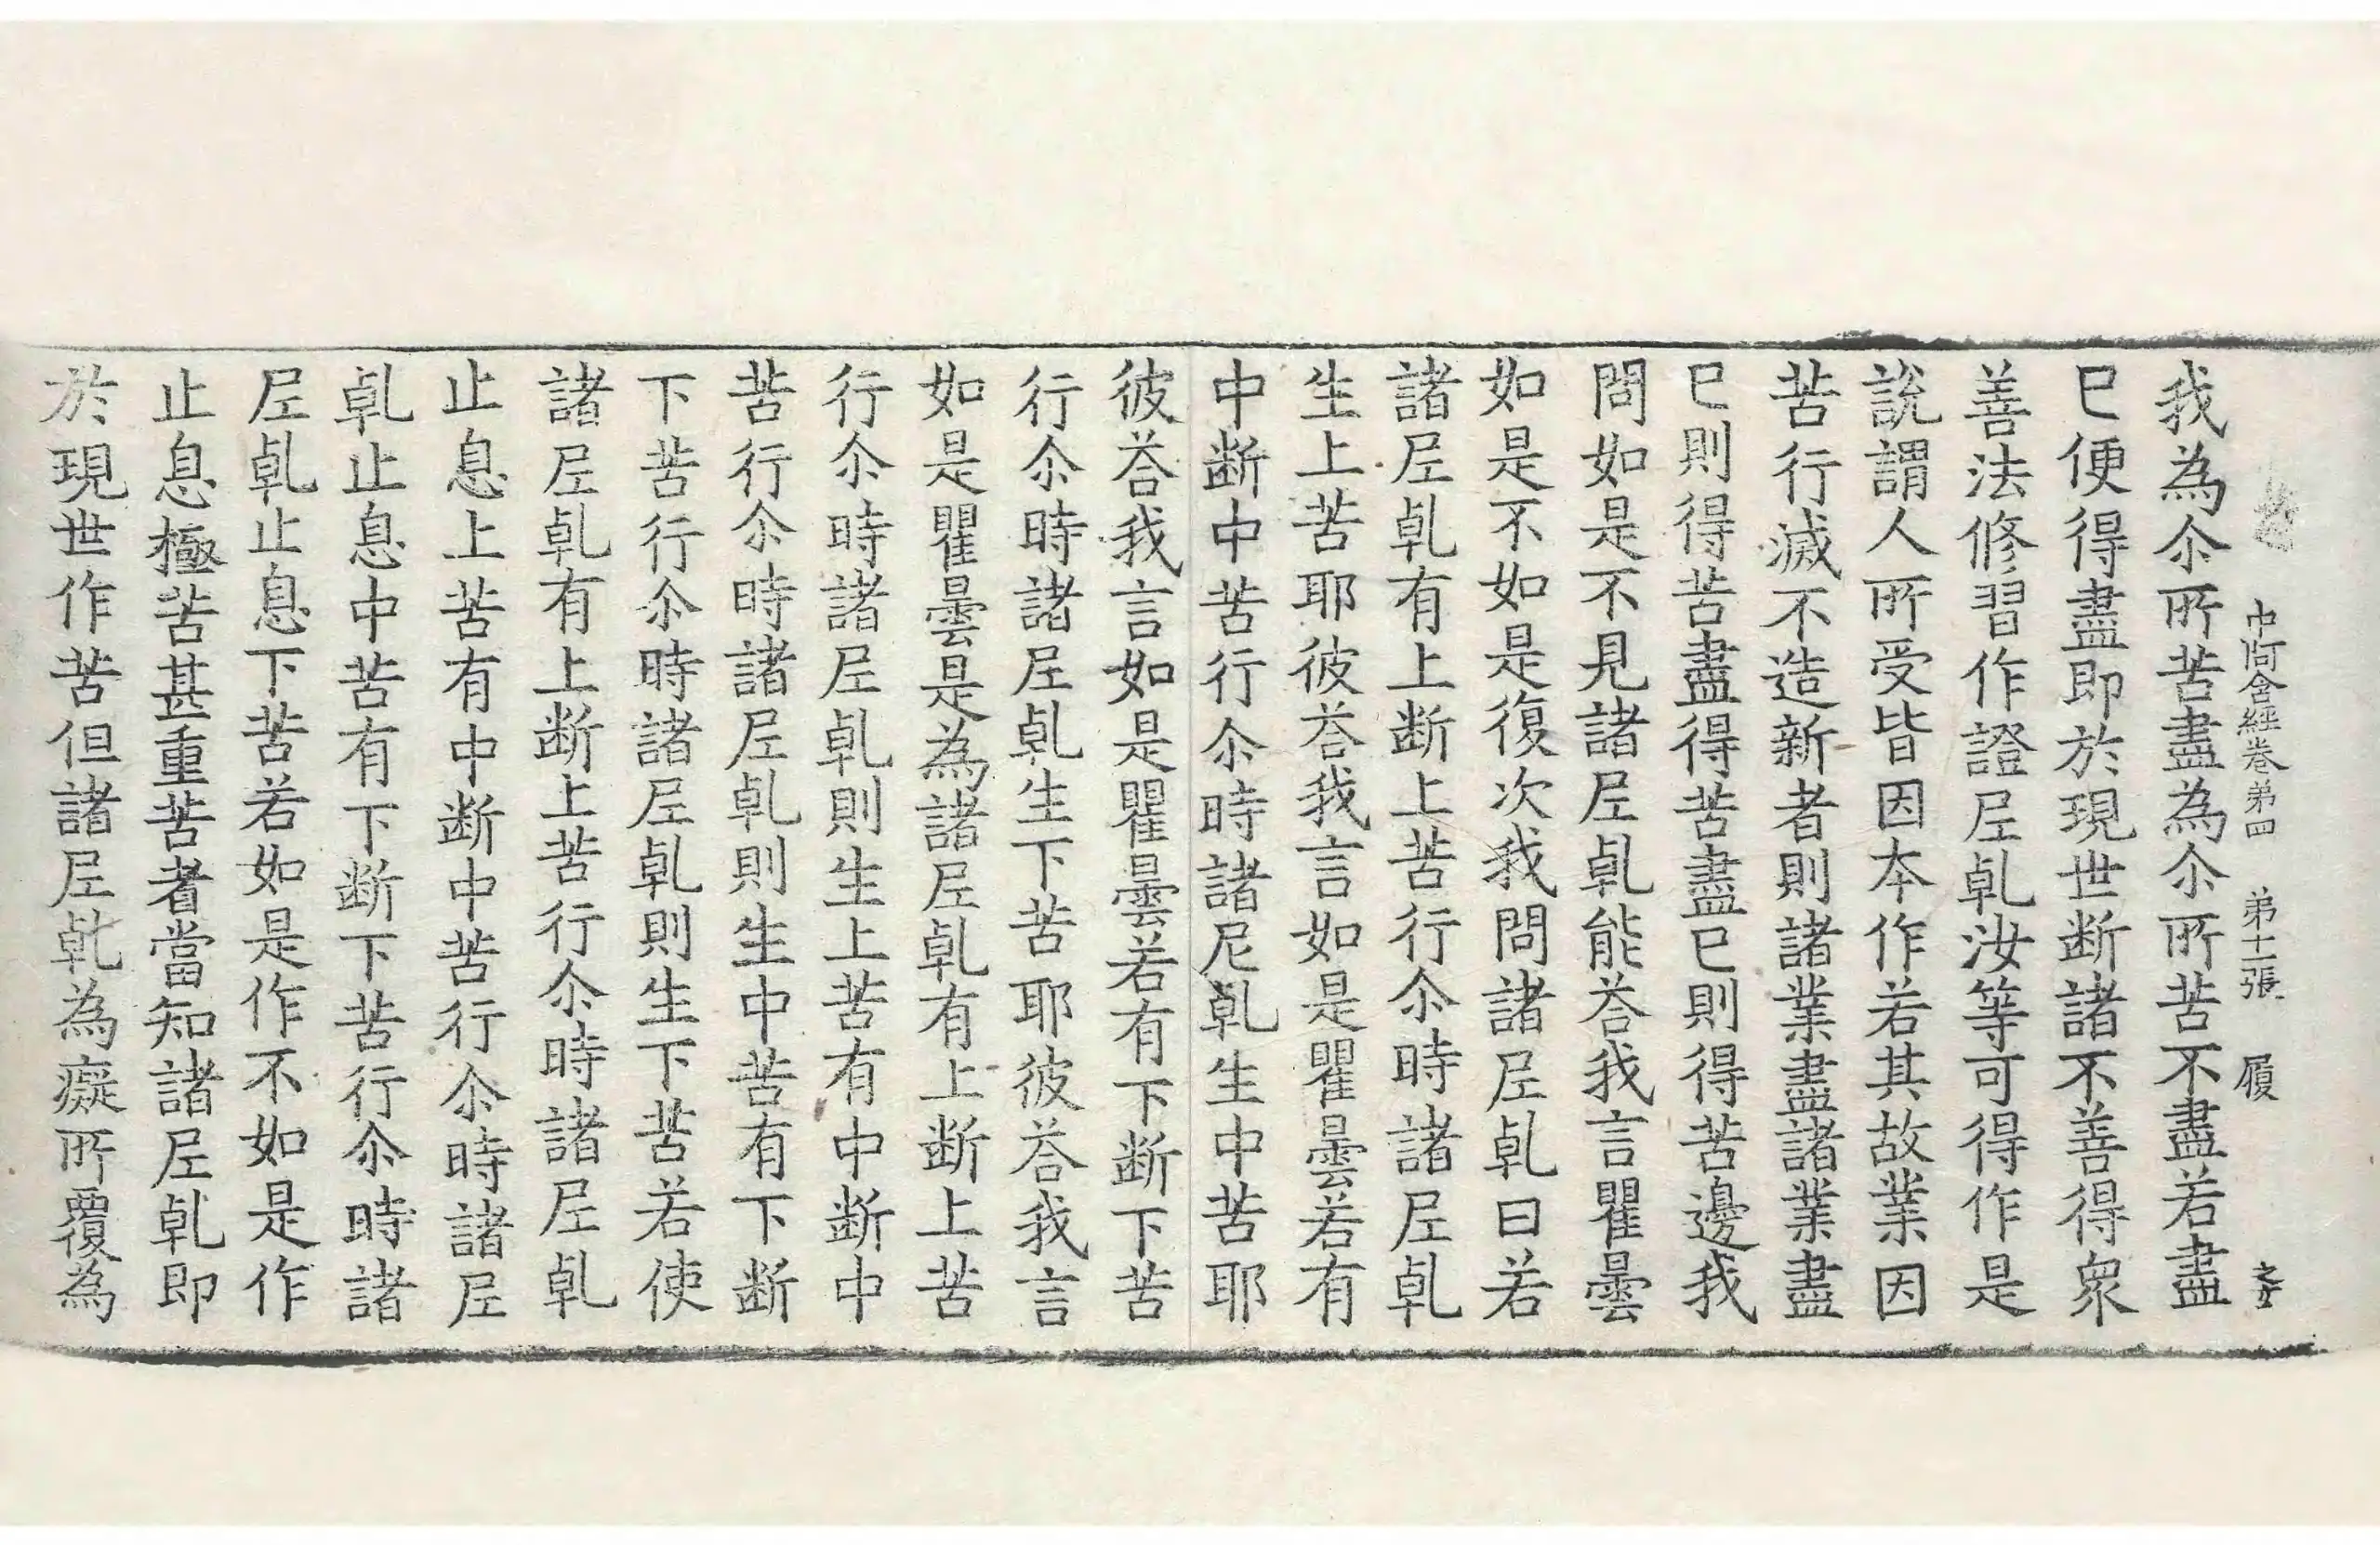 中阿含經卷第四 第十二張 履
我為尒所苦盡為尒所苦不盡若盡
已便得盡即於現世断諸不善得衆
善法修習作證𡰱乹汝等可得作是
說謂人所受皆因本作若其故業因
苦行滅不造新者則諸業盡諸業盡
已則得苦盡得苦盡已則得苦邊我
問如是不見諸𡰱乹能荅我言瞿曇
如是不如是復次我問諸𡰱乹曰若
諸𡰱乹有上断上苦行尒時諸𡰱乹
生上苦耶彼荅我言如是瞿曇若有
中断中苦行尒時諸尼乹生中苦耶
彼荅我言如是瞿曇若有下断下苦
行尒時諸𡰱乹生下苦耶彼荅我言
如是瞿曇是為諸𡰱乹有上断上苦
行尒時諸𡰱乹則生上苦有中断中
苦行尒時諸𡰱乹則生中苦有下断
下苦行尒時諸𡰱乹則生下苦若使
諸𡰱乹有上断上苦行尒時諸𡰱乹
止息上苦有中断中苦行尒時諸𡰱
乹止息中苦有下断下苦行尒時諸
𡰱乹止息下苦若如是作不如是作
止息極苦甚重苦者當知諸𡰱乹即
於現世作苦但諸𡰱乹為癡所覆為